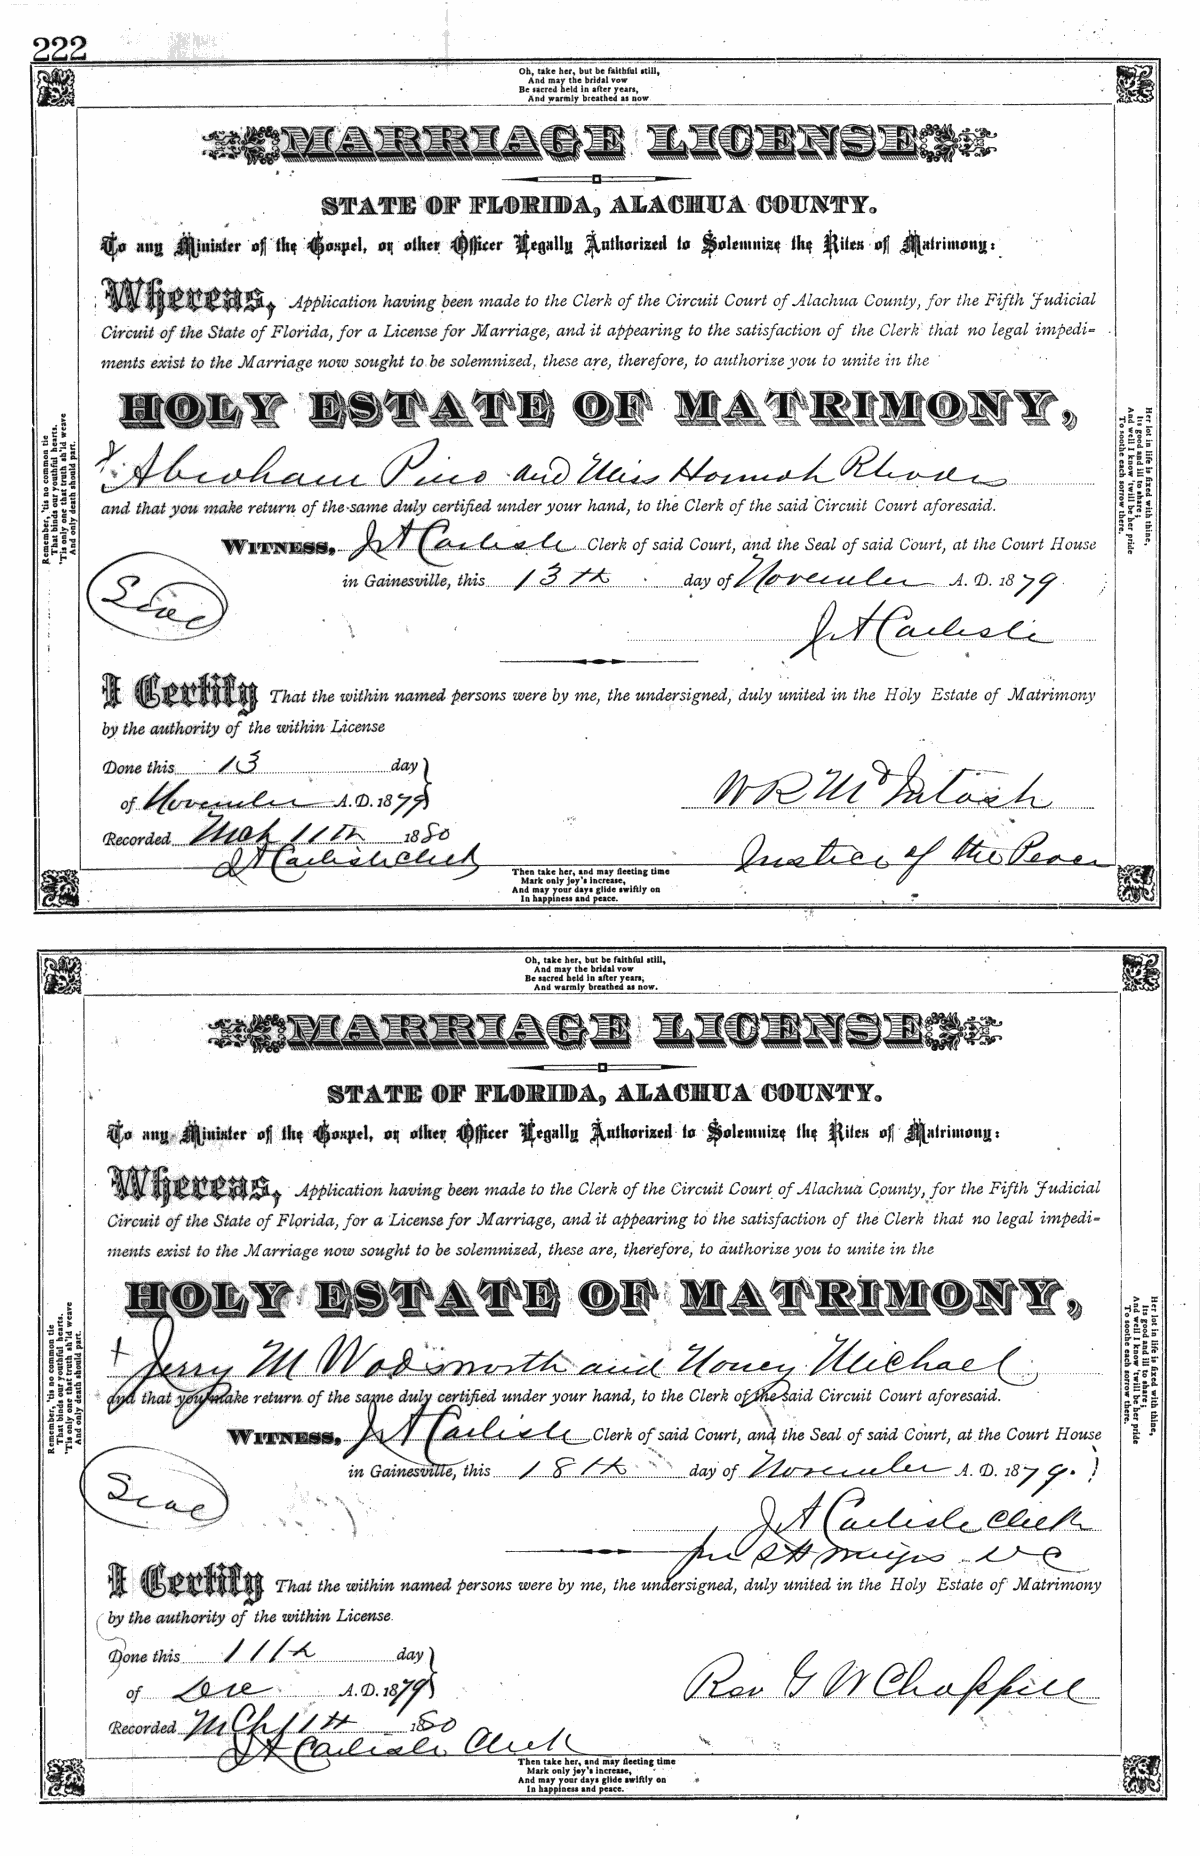 222
Oh, take her, but be faithful still,
And may the bridal vow
Be sacred held in after years,
And warmly breathed as now
MARRIAGE LICENSE
STATE OF FLORIDA, ALACHUA COUNTY.
To any Minister of the Gospel, or other Officer Legally Authorized to Solemnize the Rites of Matrimony:
Whereas, Application having been made to the Clerk of the Circuit Court of Alachua County, for the Fifth Judicial
Circuit of the State of Florida, for a License for Marriage, and it appearing to the satisfaction of the Clerk that no legal impedi-
ments exist to the Marriage now sought to be solemnized, these are, therefore, to authorize you to unite in the
HOLY ESTATE OF MATRIMONY,
Abraham and Miss Hannah Rhodes
and that you make return of the same duly certified under your hand, to the Clerk of the said Circuit Court aforesaid.
WITNESS, J A Carlisle Clerk of said Court, and the Seal of said Court, at the Court House
in Gainesville, this 13th day of November A. D. 1879
Seal
J A Carlisle
I Certify That the within named persons were by me, the undersigned, duly united in the Holy Estate of Matrimony
by the authority of the within License
Done this 13 day
of November A.D. 1879
W R McIntosh
Recorded Mch 11th 1880
J A Carlisle Clerk
Justice of the Peace
Then take her, and may fleeting time
Mark only joy's increase,
And may your days glide swiftly on
In happiness and peace.
Remember, 'tis no common tie
That binds our youthful hearts,
'Tis only one that truth sh'ld weave
And only death should part.
Her lot in life is fixed with thine,
Its good and ill to share;
And well I know 'twill be her pride
To soothe each sorrow there.
Oh, take her, but be faithful still,
And may the bridal vow
Be sacred held in after years,
And warmly breathed as now.
MARRIAGE LICENSE
STATE OF FLORIDA, ALACHUA COUNTY.
To any Minister of the Gospel, or other Officer Legally Authorized to Solemnize the Rites of Matrimony:
Whereas, Application having been made to the Clerk of the Circuit Court of Alachua County, for the Fifth Judicial
Circuit of the State of Florida, for a License for Marriage, and it appearing to the satisfaction of the Clerk that no legal impedi-
ments exist to the Marriage now sought to be solemnized, these are, therefore, to authorize you to unite in the
HOLY ESTATE OF MATRIMONY,
Jerry M Wadsworth and Nancy Michael
and that you make return of the same duly certified under your hand, to the Clerk of the said Circuit Court aforesaid.
WITNESS, J A Carlisle Clerk of said Court, and the Seal of said Court, at the Court House
in Gainesville, this 18th day of November A. D. 1879.
Seal
J A Carlisle Clerk
per S H DC
I Certify That the within named persons were by me, the undersigned, duly united in the Holy Estate of Matrimony
by the authority of the within License.
Done this 11th day
of Dec A.D. 1879
Rev G W Chappill
Recorded Mch 11th 1880
J A Carlisle Clerk
Then take her, and may fleeting time
Mark only joy's increase,
And may your days glide swiftly on
In happiness and peace.
Remember, 'tis no common tie
That binds our youthful hearts,
'Tis only one that truth sh'ld weave
And only death should part.
Her lot in life is fixed with thine,
Its good and ill to share;
And well I know 'twill be her pride
To soothe each sorrow there.